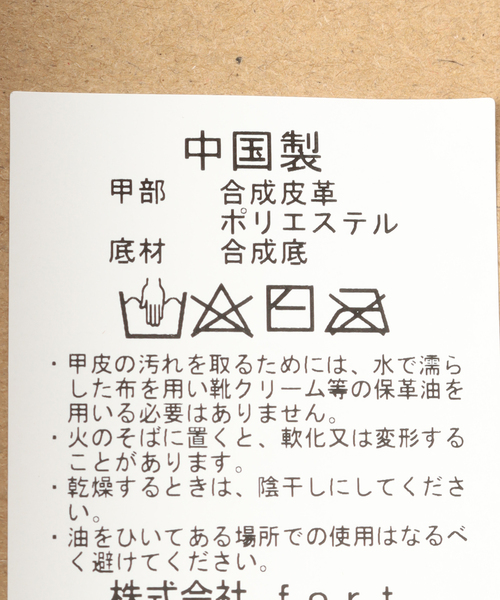 中国製
甲部 合成皮革
ポリエステル
底材 合成底
・甲皮の汚れを取るためには、水で濡ら
した布を用い靴クリーム等の保革油を
用いる必要はありません。
・火のそばに置くと、軟化又は変形する
ことがあります。
・乾燥するときは、陰干しにしてくださ
い。
・油をひいてある場所での使用はなるべ
く避けてください。
株式会社 ｆｏｒｔ